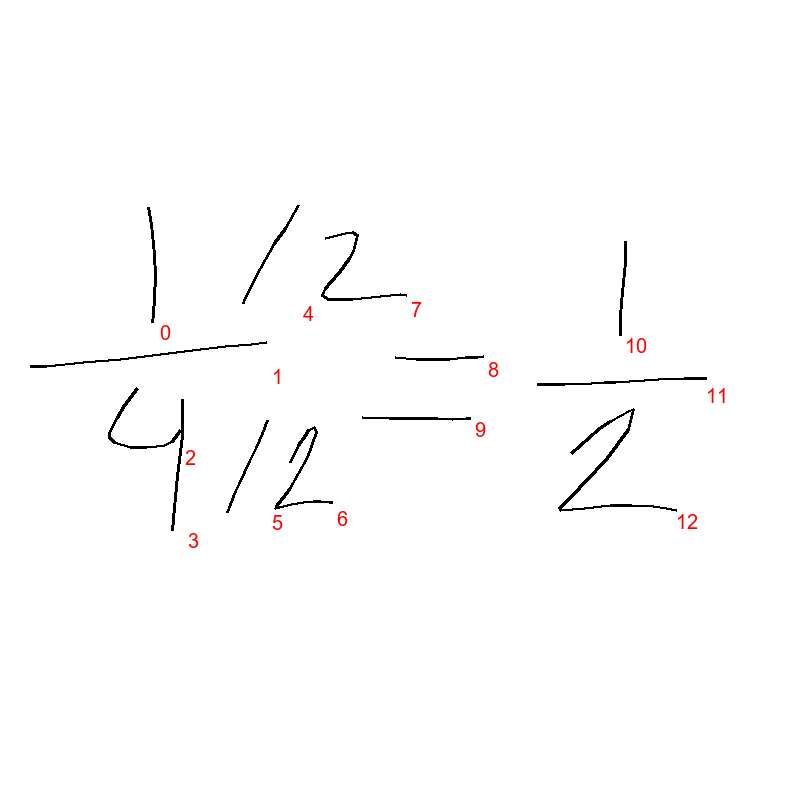 1 /2 = 1
4 /2 2
0
1
2
3
4
5
6
7
8
9
10
11
12